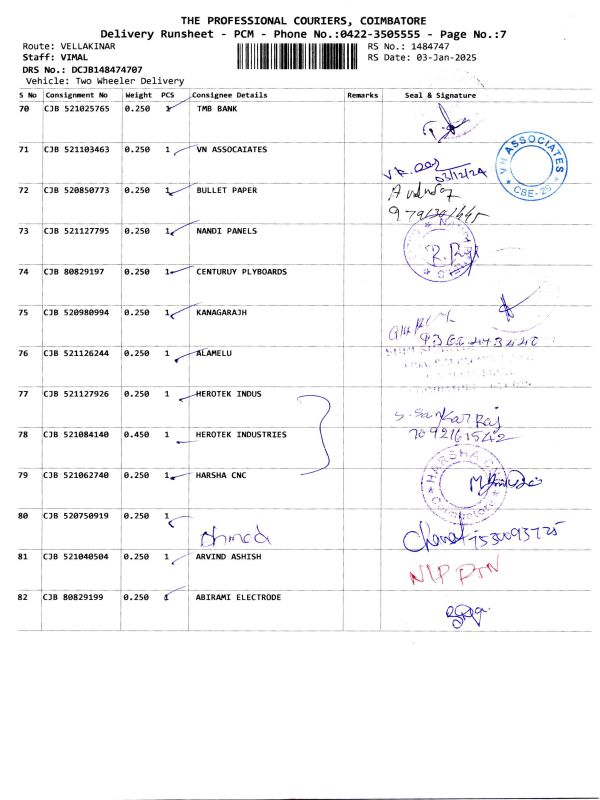 THE PROFESSIONAL COURIERS, COIMBATORE
Delivery Runsheet - PCM - Phone No.:0422-3505555 - Page No.:7
Route: VELLAKINAR RS No.: 1484747
Staff: VIMAL RS Date: 03-Jan-2025
DRS No.: DCJB148474707
Vehicle: Two Wheeler Delivery
S No Consignment No Weight PCS Consignee Details Remarks Seal & Signature
70 CJB 521025765 0.250 1 TMB BANK
71 CJB 521103463 0.250 1 VN ASSOCAIATES
VH ASSOCIATES
CBE-29
03/12/24
72 CJB 520850773 0.250 1 BULLET PAPER
73 CJB 521127795 0.250 1 NANDI PANELS
74 CJB 80829197 0.250 1 CENTURUY PLYBOARDS
75 CJB 520980994 0.250 1 KANAGARAJH
76 CJB 521126244 0.250 1 ALAMELU
77 CJB 521127926 0.250 1 HEROTEK INDUS
S. Sankar Raj
7092161542
78 CJB 521084140 0.450 1 HEROTEK INDUSTRIES
79 CJB 521062740 0.250 1 HARSHA CNC
HARSHA CNC
Coimbatore
80 CJB 520750919 0.250 1
Ahmed
7530093725
81 CJB 521040504 0.250 1 ARVIND ASHISH
NLP RTN
82 CJB 80829199 0.250 1 ABIRAMI ELECTRODE